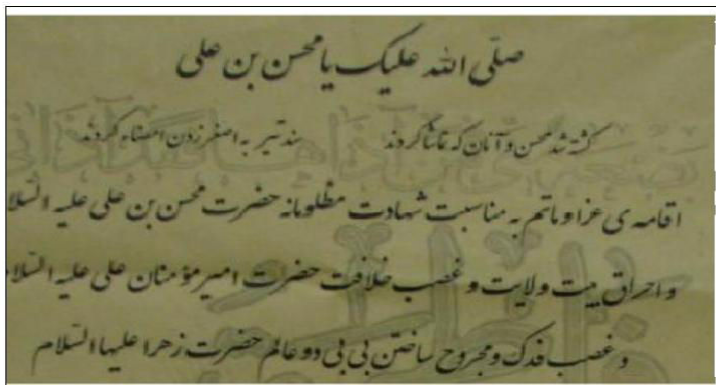 صلّی الله علیک یا محسن بن علی
کشته شد محسن و آنان که تماشا کردند سند تیر به اصغر زدن امضاء کردند
اقامه ی عزا و ماتم به مناسبت شهادت مظلومانه حضرت محسن بن علی علیه السلا
و احراق بیت ولایت و غصب خلافت حضرت امیر مؤمنان علی علیه السلا
و غصب فدک و مجروح ساختن بی بی دو عالم حضرت زهرا علیها السّلام